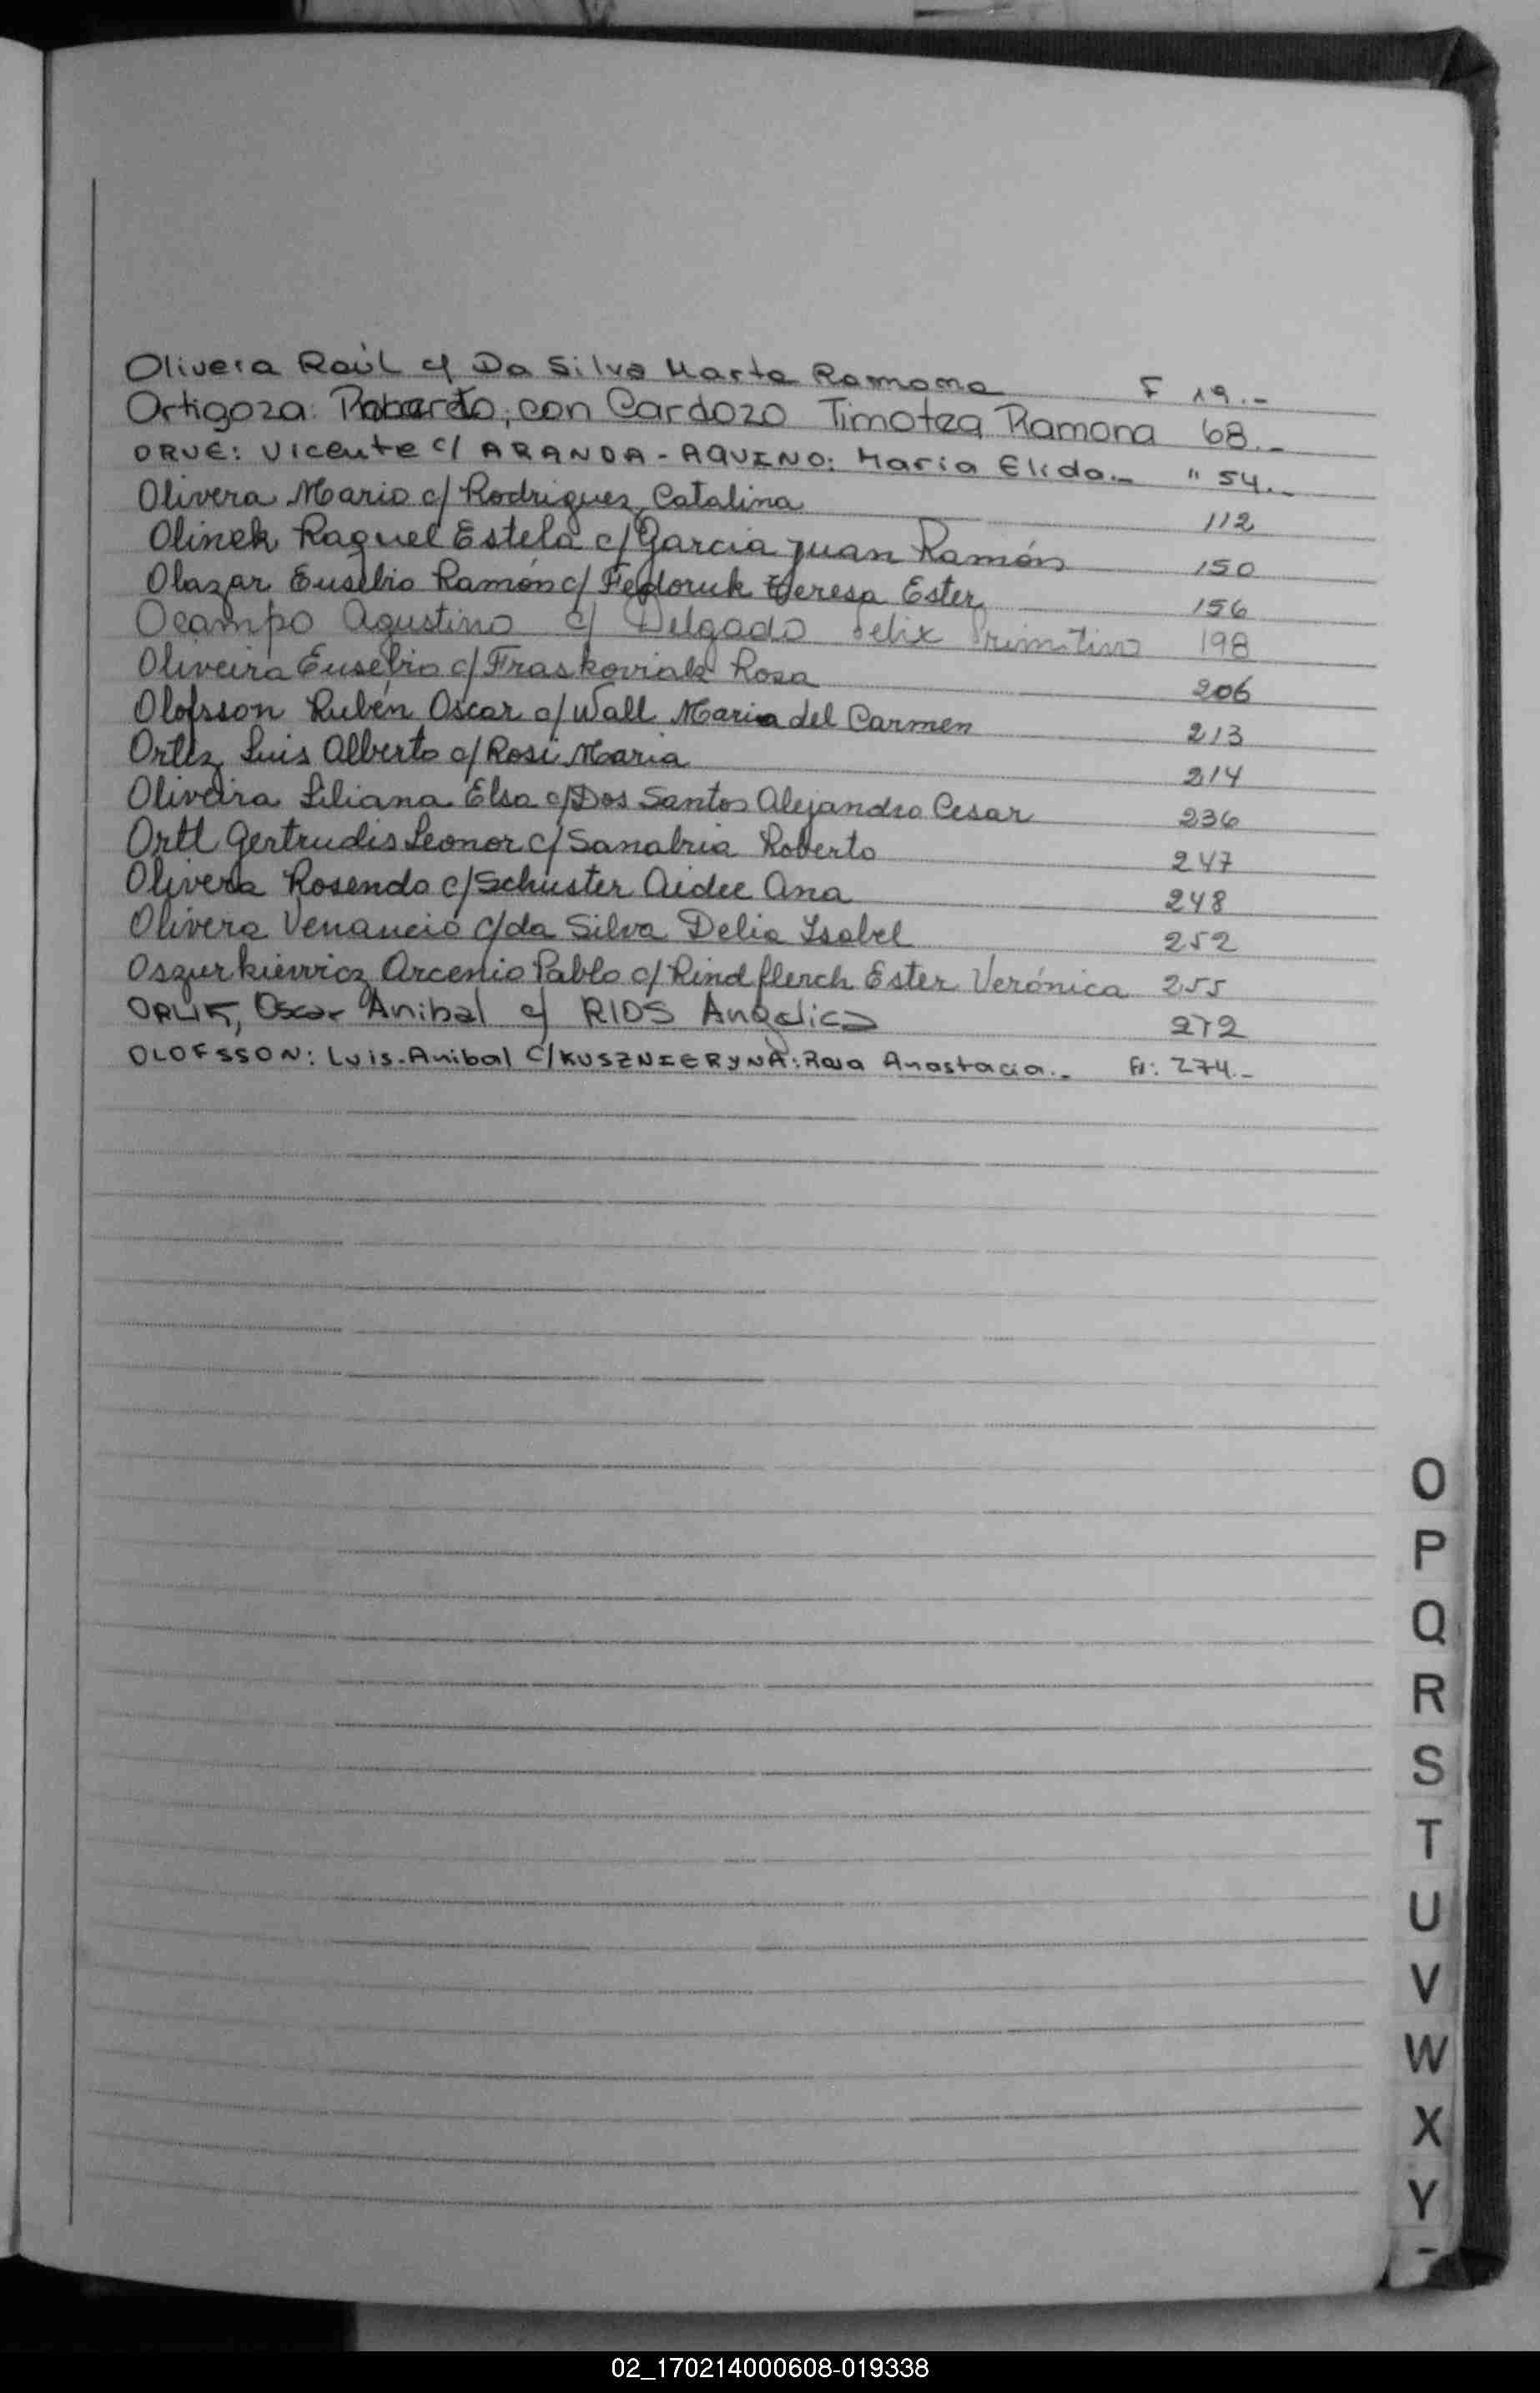 Olivera Raúl c/ Da Silva Marta Ramona F 19.-
Ortigoza: Roberto, con Cardozo Timotea Ramona 68.-
ORUE: Vicente c/ ARANDA - AQUINO: Maria Elida.- " 54.-
Olivera Mario c/ Rodriguez, Catalina 112
Olinek Raquel Estela c/ Garcia Juan Ramón 150
Olazar Eusebio Ramón c/ Fedoruk Teresa Ester 156
Ocampo Agustino c/ Delgado Felix Primitivo 198
Oliveira Eusebio c/ Fraskoviak Rosa 206
Olofsson Rubén Oscar c/ Wall Maria del Carmen 213
Ortiz, Luis Alberto c/ Rosi Maria 214
Oliveira Liliana Elsa c/ Dos Santos Alejandro Cesar 236
Ortt Gertrudis Leonor c/ Sanabria Roberto 247
Olivera Rosendo c/ Schuster Aidee Ana 248
Olivera Venancio c/ da Silva Delia Isabel 252
Oszurkiewicz Arcenio Pablo c/ Rindflerch Ester Verónica 255
Oscar Anibal c/ RIOS Angelica 272
OLOFSSON: Luis-Anibal C/ KUSZNIERYNA: Rosa Anastacia.- Fº: 274.-
O
P
Q
R
S
T
U
V
W
X
Y
-
02_170214000608-019338